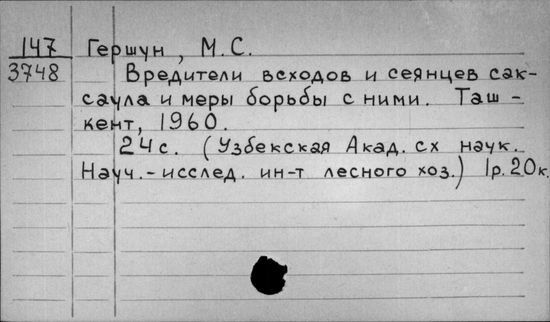 147 Гершун, М.С.
3748 Вредители всходов и сеянцев сак-
саула и меры борьбы с ними. Таш-
кент, 1960.
24с. (Узбекская Акад. сх наук.
Науч.-исслед. ин-т лесного хоз.) 1р.20к.